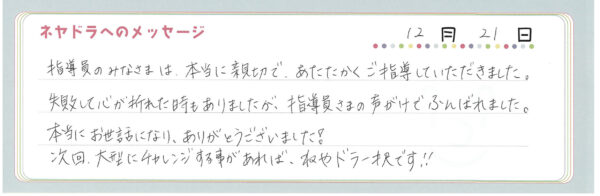 ネヤドラへのメッセージ
12月 21日
指導員のみなさまは、本当に親切で、あたたかくご指導していただきました。
失敗して心が折れた時もありましたが、指導員さまの声がけでふんばれました。
本当にお世話になり、ありがとうございました!
次回、大型にチャレンジする事があれば、ねやドラ一択です!!